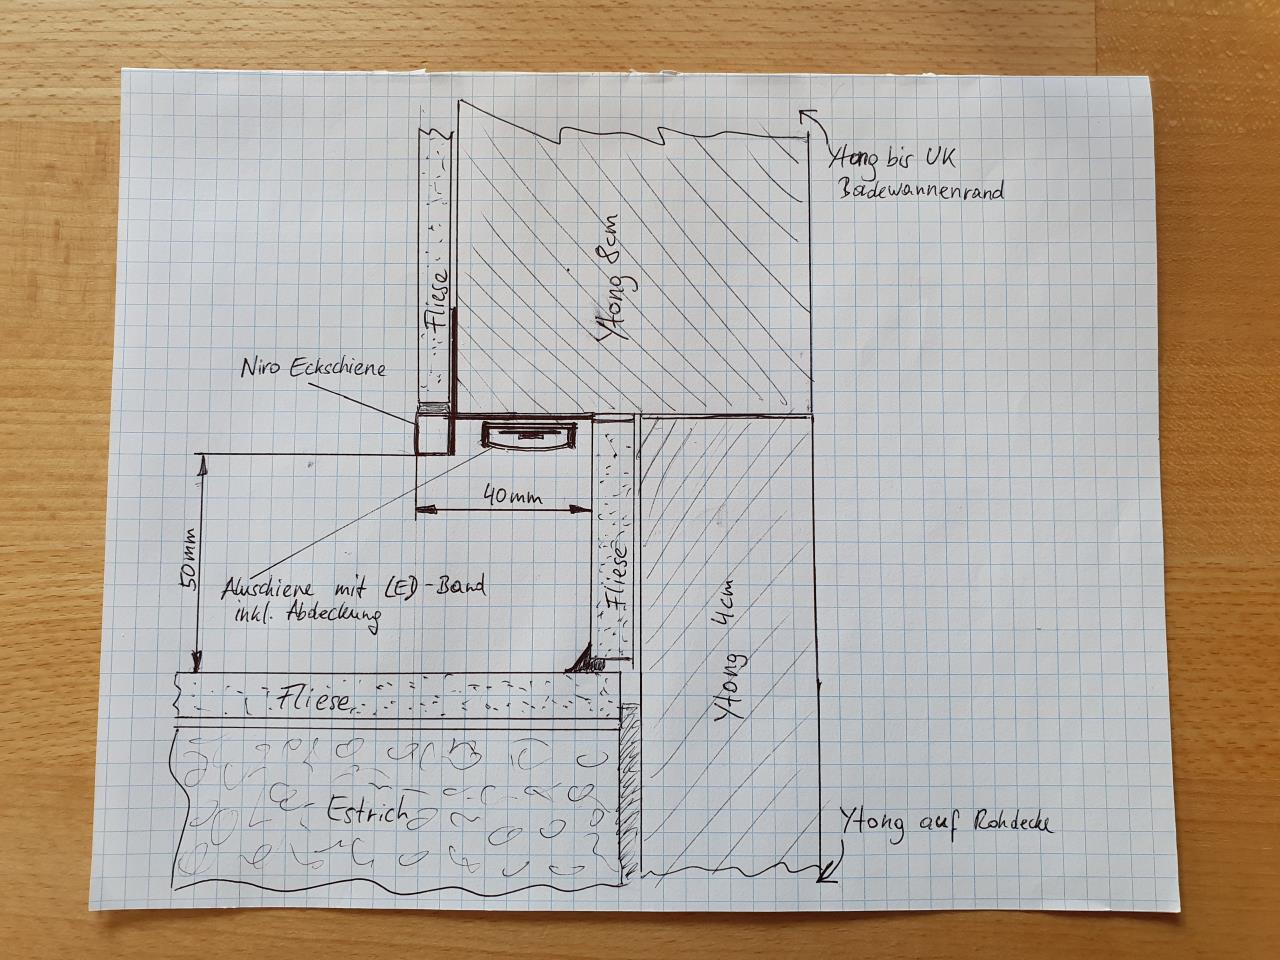 Ytong bis UK
Badewannenrand
Fliese
Ytong 8cm
Niro Eckschiene
40mm
50mm
Aluschiene mit LED-Band
inkl. Abdeckung
Fliese
Ytong 4cm
Fliese
Estrich
Ytong auf Rohdecke